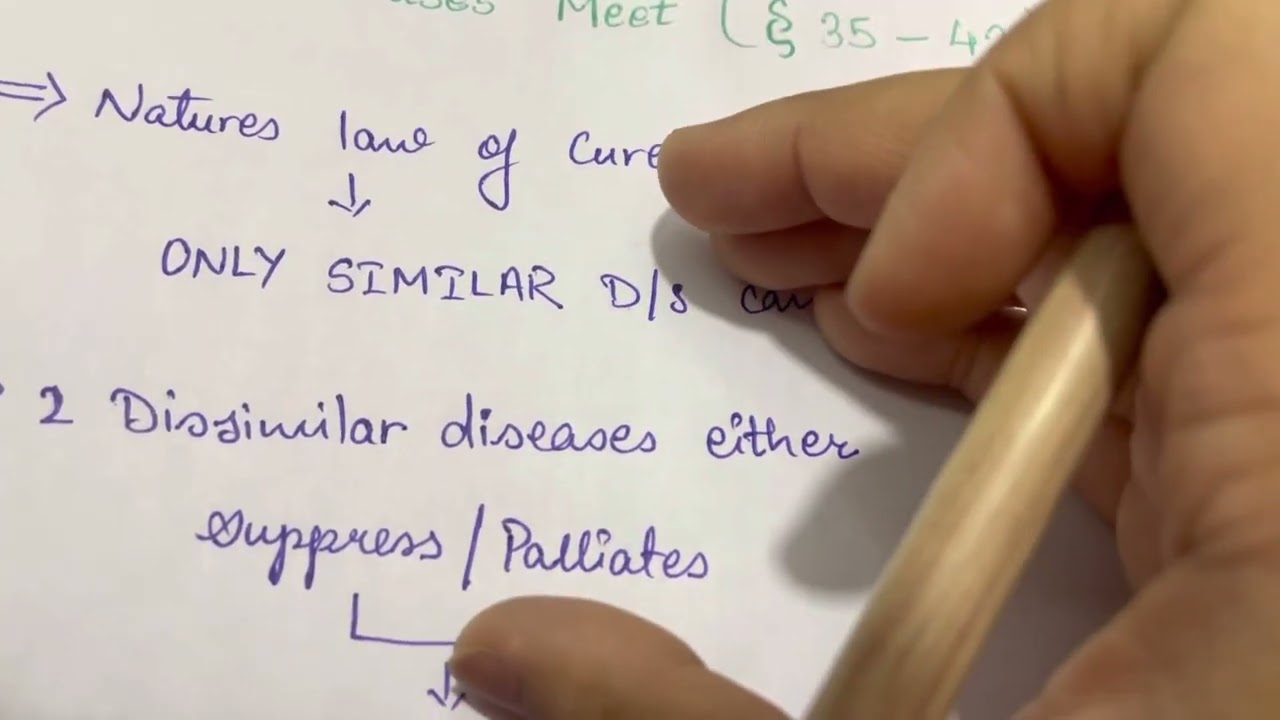 Meet (§ 35 – 42
⇒ Natures law of Cure
↓
ONLY SIMILAR D/s can
2 Dissimilar diseases either
Suppress / Palliates
↓